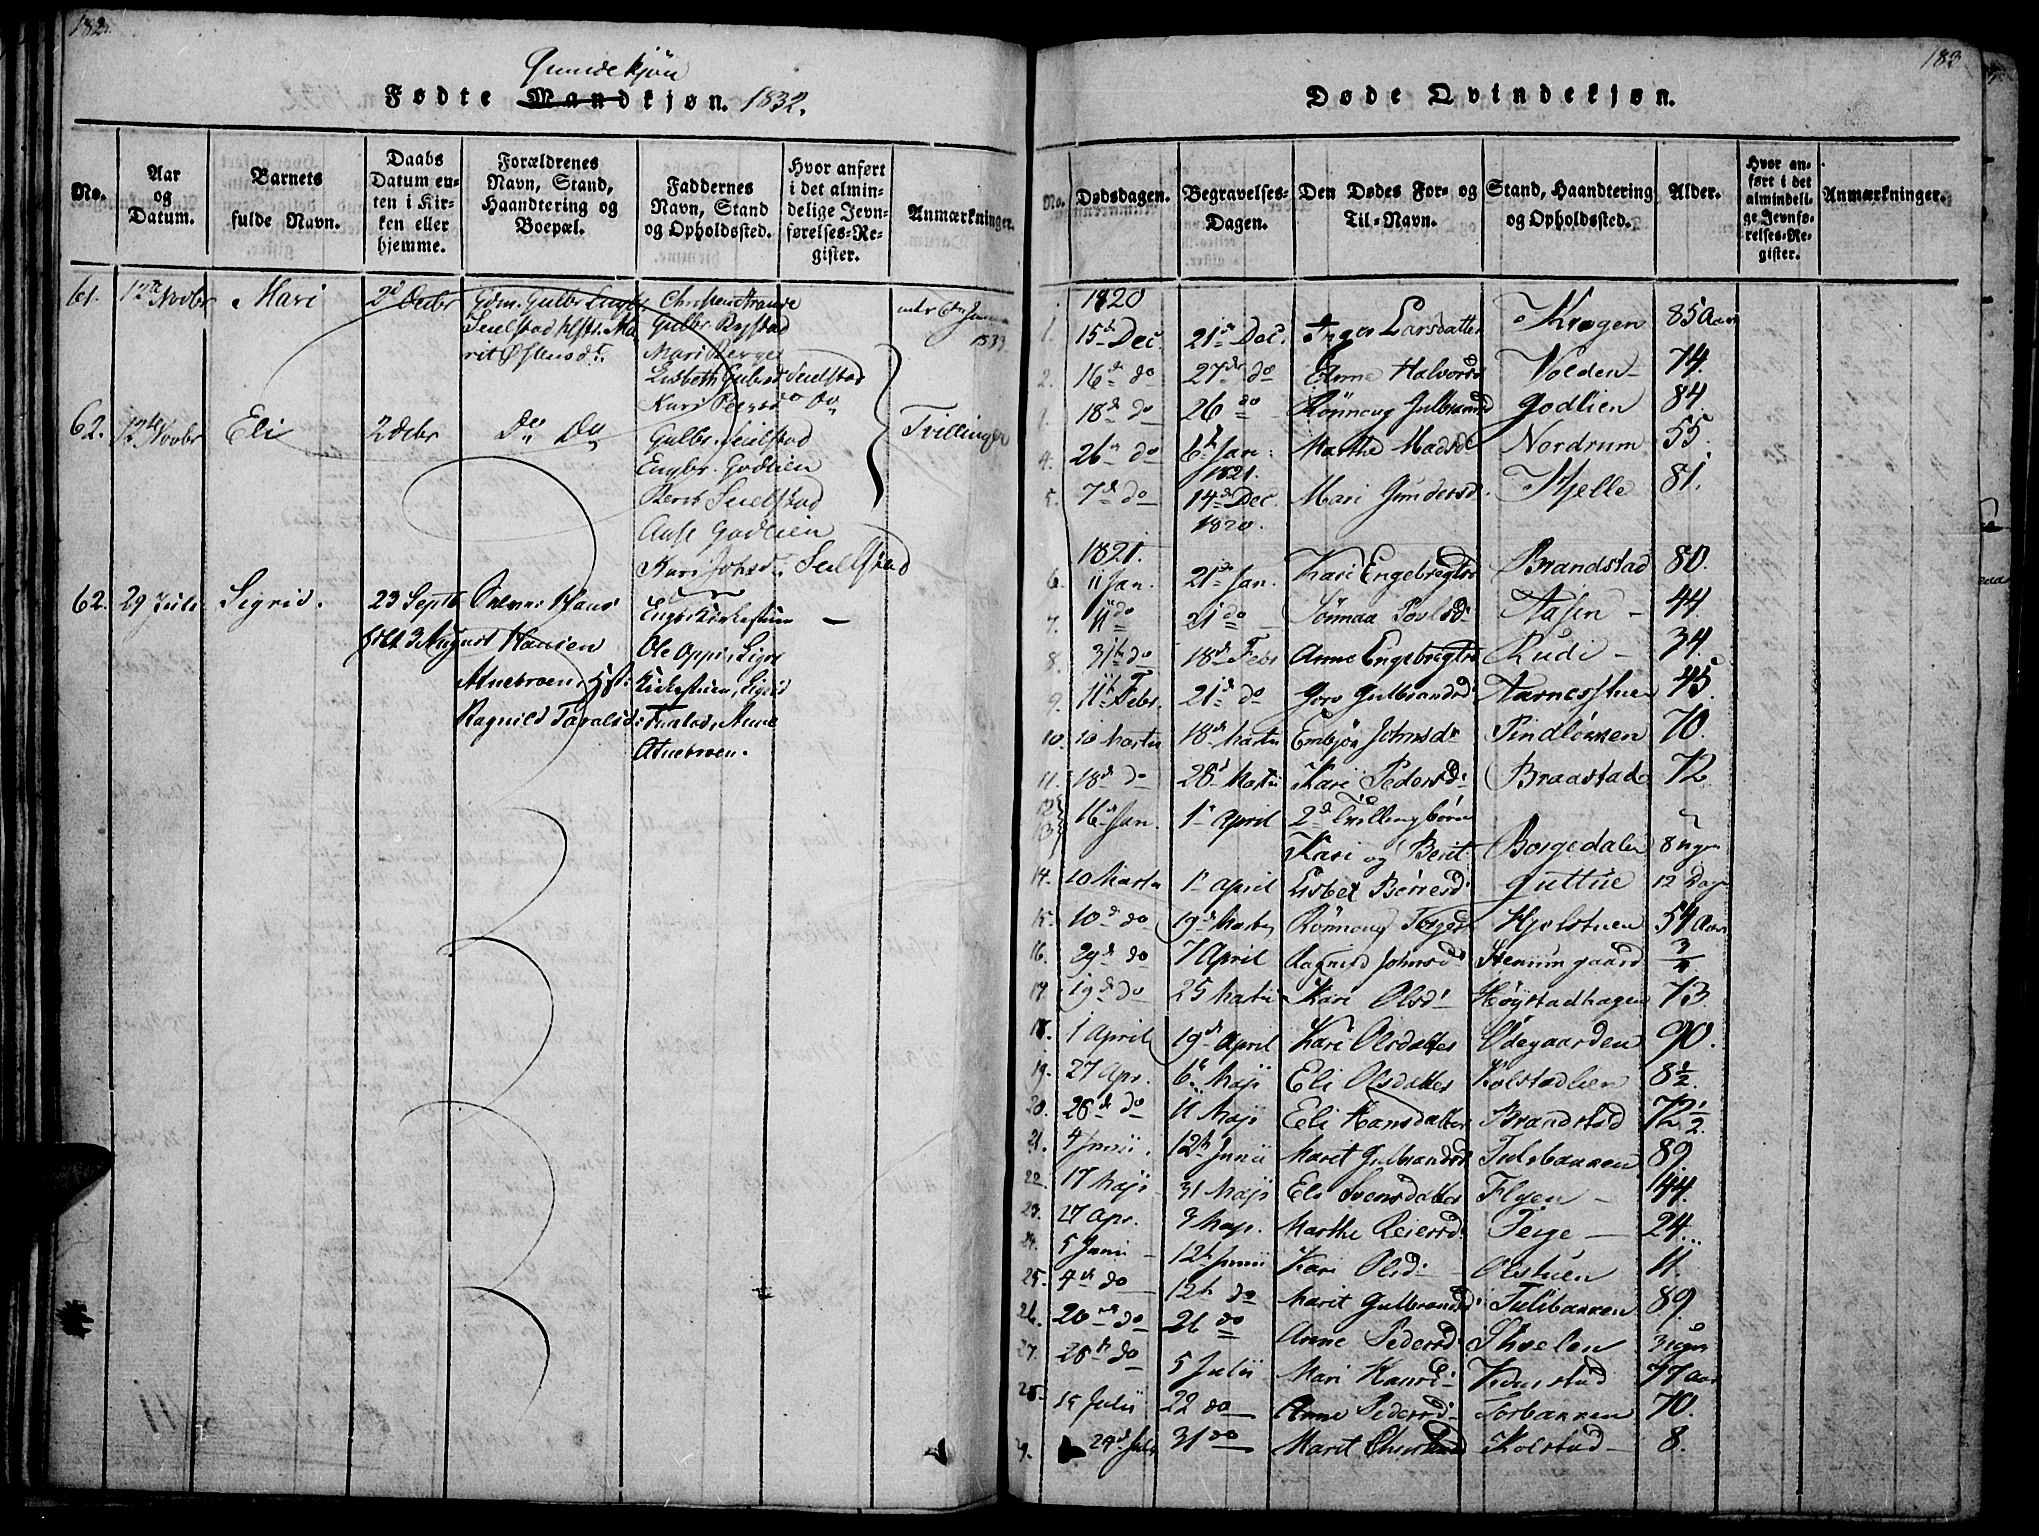 182.
Qvindekjön
Fødte Mandkjøn. 1832.
No.
Aar og Datum.
Barnets fulde Navn.
Daabs Datum enten i Kirken eller hjemme.
Forældrenes Navn, Stand, Haandtering og Boepæl.
Faddernes Navn, Stand og Opholdssted.
Hvor anført i det almindelige Jevnførelses-Register.
Anmærkninger.
61. 12te Novbr Mari 2d Decbr Gdm. Gulbr
Seielstad Hstr. Ma
rit Østensd.
Christen
Gulbr.
Mari Berge
Lisbeth Gulbrsd Seielstad
Kari Pedersd Do
1833
62. 12te Novbr Eli 2 Decbr Do Do Tvillinger
Gulbr. Seielstad
Engbr. Godlien
Berit Seielstad
Anse Godlien
Kari Johsd. Seielstad
62. 29 Juli Sigrid. 23 Septb Hans
3 August Hansen
Atnebroen, Hst:
Ragnild
Engbr Kirkestuen
Ole Oppi, Sigri
Kirkestuen, Sigrid
Anne
Atnebroen.
183
Døde Qvindekjøn.
No.
Dødsdagen.
Begravelses-Dagen.
Den Dødes For- og Til-Navn.
Stand, Haandtering og Opholdssted.
Alder.
Hvor anført i det almindelige Jevnførelses-Register.
Anmærkninger.
1820
1. 15de Dec. 21de Dec. Inger Larsdatter Kragen 85 Aar
2. 16de do 27de do Anne Halvorsd Volden 74.
18de do 26 do Rönnoug Gulbrandsd Godlien 84
4. 26de do 6te Jan: 1821. Marthe Madsd Nordrum 55.
5. 7de do 14de Dec 1820. Mari Gundersd. Kjelle 81.
1821.
6. 11 Jan. 21de Jan. Kari Engebregtsd Brandstad 80.
7. 11 do 21 do Povlsd: Aasen 44.
8. 31te do 18de Febr Anne Engebregtsd Rudi 34.
9. 11te Febr. 21de do Goro Gulbrandsd: Aarnesstuen 45.
10. 10 Martii 18de Martii Embjör Johnsdr Pindlökken 70.
11. 18de do 28d Martii Kari Pedersd: Braastad 72
12 13 16de Jan. 1ste April 2de Tvillingbörn
Kari og Berit Borgedalen 8
14. 10 Martii 1ste April Lisbet Guttue 12 Dage
15. 10de do 19de Martii Rönnoug Kjolstuen 54 Aar
16. 29de do 7 April Ragnild Johnsd: 3/4
17. 19de do 25 Martii Kari Olsd: Höystadhagen 73
18. 1 April 19de April Kari Olsdatter Ødegaarden 90.
19. 27 Apr. 6te Maji Eli Olsdatter Kolstadlien 8 1/2
20. 28de do 11 Maji Eli Hansdatter Brandstad 72 1/2.
21. 4 Junii. 12te Junii Marit Gulbrandsd Tulibakken 89.
22. 17 Maji 31 Maji Eli Svensdatter Flyen 44.
23. 27 Apr. 3 Maji. Marthe Reiersd: 24.
24. 5 Junii 12te Junii Kari Olsd: Olstuen 11.
25. 4de do 12te do Marit Gulbrandsd: Tulibakken 89.
26. 20de do 26 do Anne Pedersd: 3
27. 28de do 5 Julii Mari Hansd: 77 Aar
28. 15 Julii 22 do Anne Pedersd: 70.
29d Juli 31 do Marit Kolstad 8.